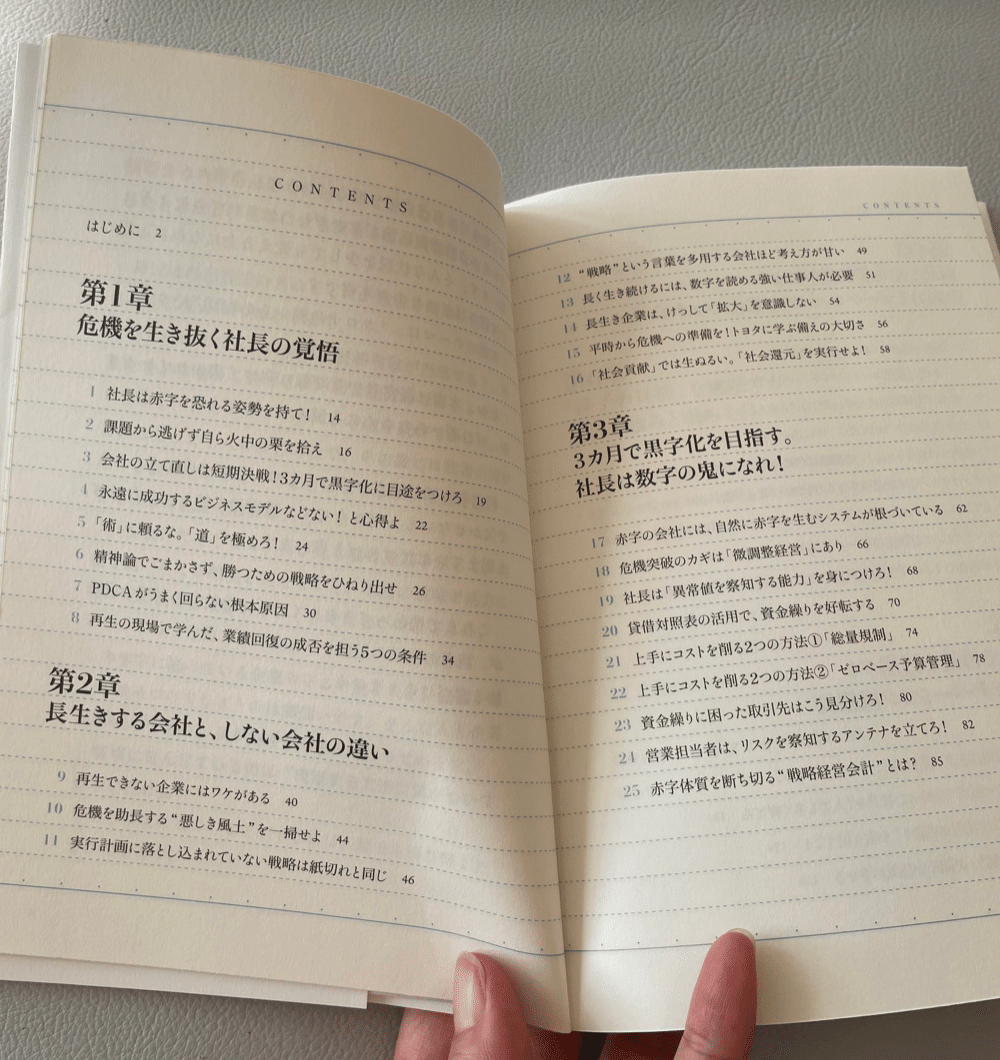 CONTENTS
はじめに 2
第1章
危機を生き抜く社長の覚悟
1 社長は赤字を恐れる姿勢を持て! 14
2 課題から逃げず自ら火中の栗を拾え 16
3 会社の立て直しは短期決戦!3カ月で黒字化に目途をつけろ 19
4 永遠に成功するビジネスモデルなどない! と心得よ 22
5 「術」に頼るな。「道」を極めろ! 24
6 精神論でごまかさず、勝つための戦略をひねり出せ 26
7 PDCAがうまく回らない根本原因 30
8 再生の現場で学んだ、業績回復の成否を担う5つの条件 34
第2章
長生きする会社と、しない会社の違い
9 再生できない企業にはワケがある 40
10 危機を助長する“悪しき風土”を一掃せよ 44
11 実行計画に落とし込まれていない戦略は紙切れと同じ 46
CONTENTS
12 “戦略”という言葉を多用する会社ほど考え方が甘い 49
13 長く生き続けるには、数字を読める強い仕事人が必要 51
14 長生き企業は、けっして「拡大」を意識しない 54
15 平時から危機への準備を!トヨタに学ぶ備えの大切さ 56
16 「社会貢献」では生ぬるい。「社会還元」を実行せよ! 58
第3章
3カ月で黒字化を目指す。
社長は数字の鬼になれ!
17 赤字の会社には、自然に赤字を生むシステムが根づいている 62
18 危機突破のカギは「微調整経営」にあり 66
19 社長は「異常値を察知する能力」を身につけろ! 68
20 貸借対照表の活用で、資金繰りを好転する 70
21 上手にコストを削る2つの方法①「総量規制」 74
22 上手にコストを削る2つの方法②「ゼロベース予算管理」 78
23 資金繰りに困った取引先はこう見分けろ! 80
24 営業担当者は、リスクを察知するアンテナを立てろ! 82
25 赤字体質を断ち切る“戦略経営会計”とは? 85